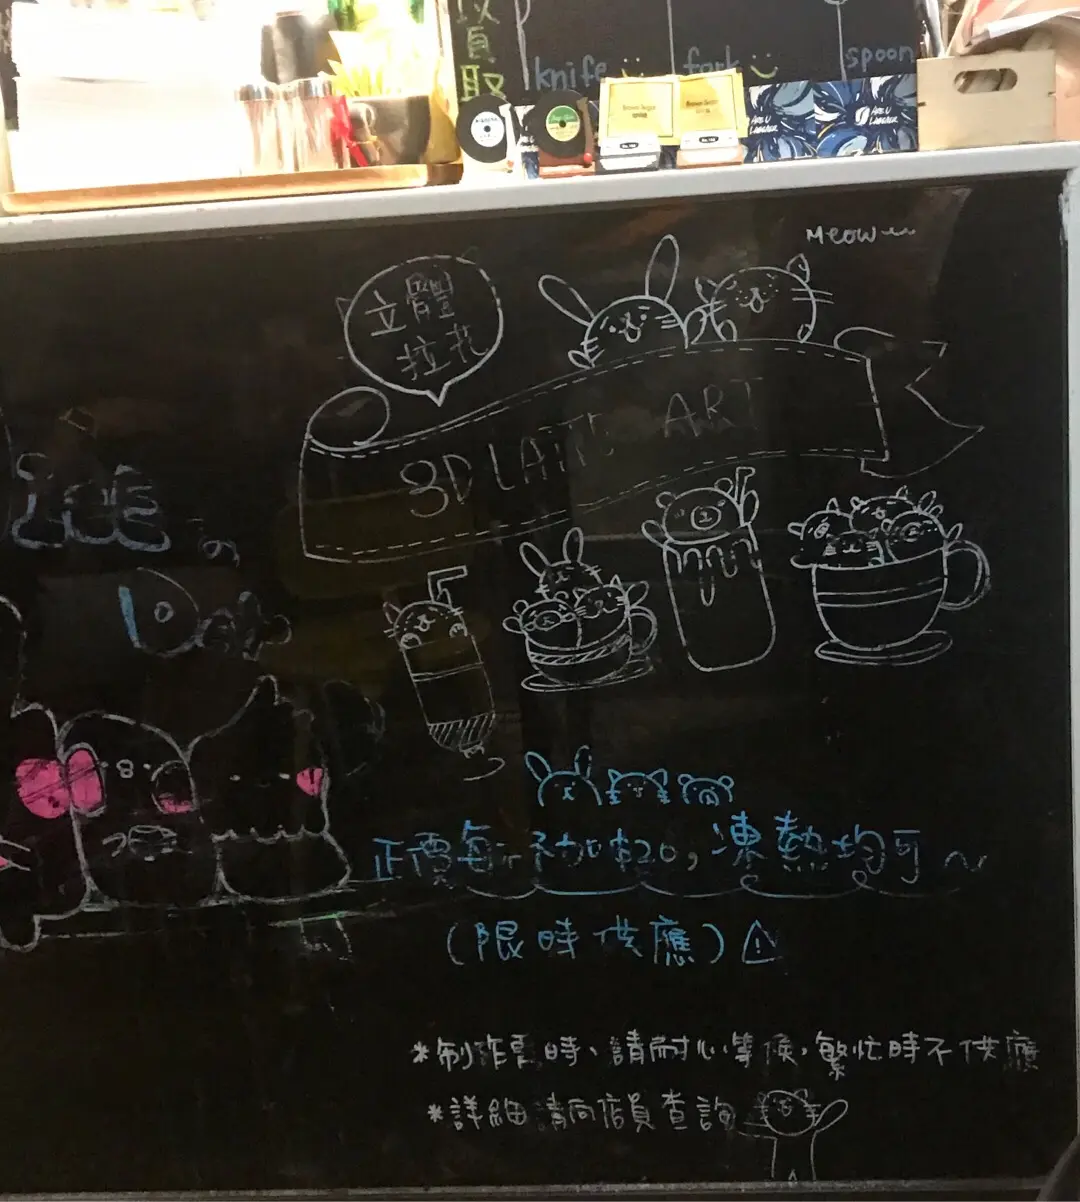 員
取
knife
fork
spoon
Meow~
立體
拉花
3D LATTE ART
の
正價每杯加$20, 凍熱均可~
(限時供應)
*制作需時、請耐心等候,繁忙時不供應
*詳細請向店員查詢